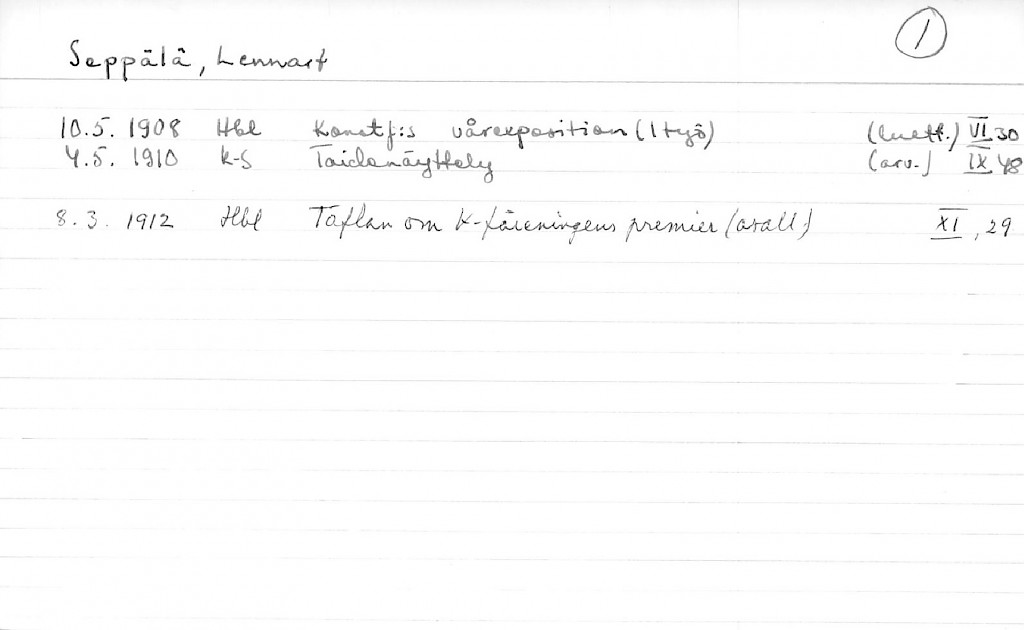 1
Seppälä, Lennart
10.5. 1908 Hbl Konstf:s vårexposition (1 työ) (luett.) VI 30
4.5. 1910 K-S Taidenäyttely (arv.) IX 48
8.3. 1912 Hbl Täflan om K-föreningens premier (osall) XI, 29